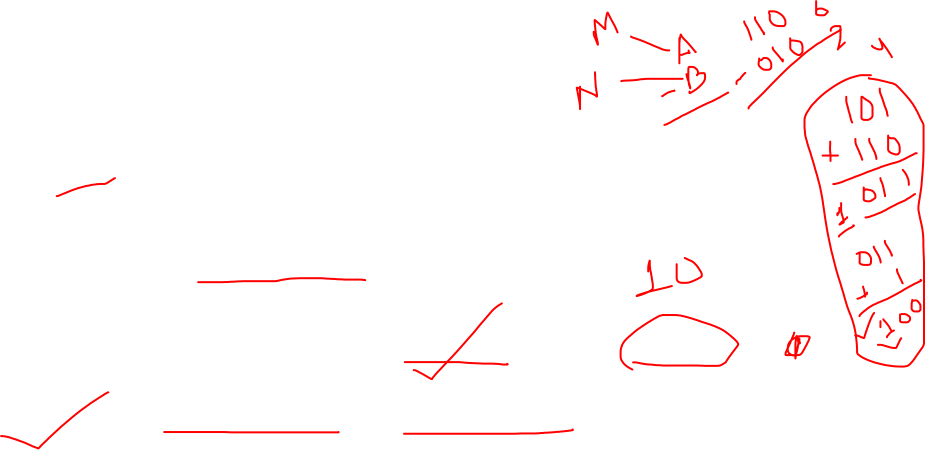 M A
N - B
110 6
- 010 2
4
101
+ 110
1 011
011
+ 1
100
10